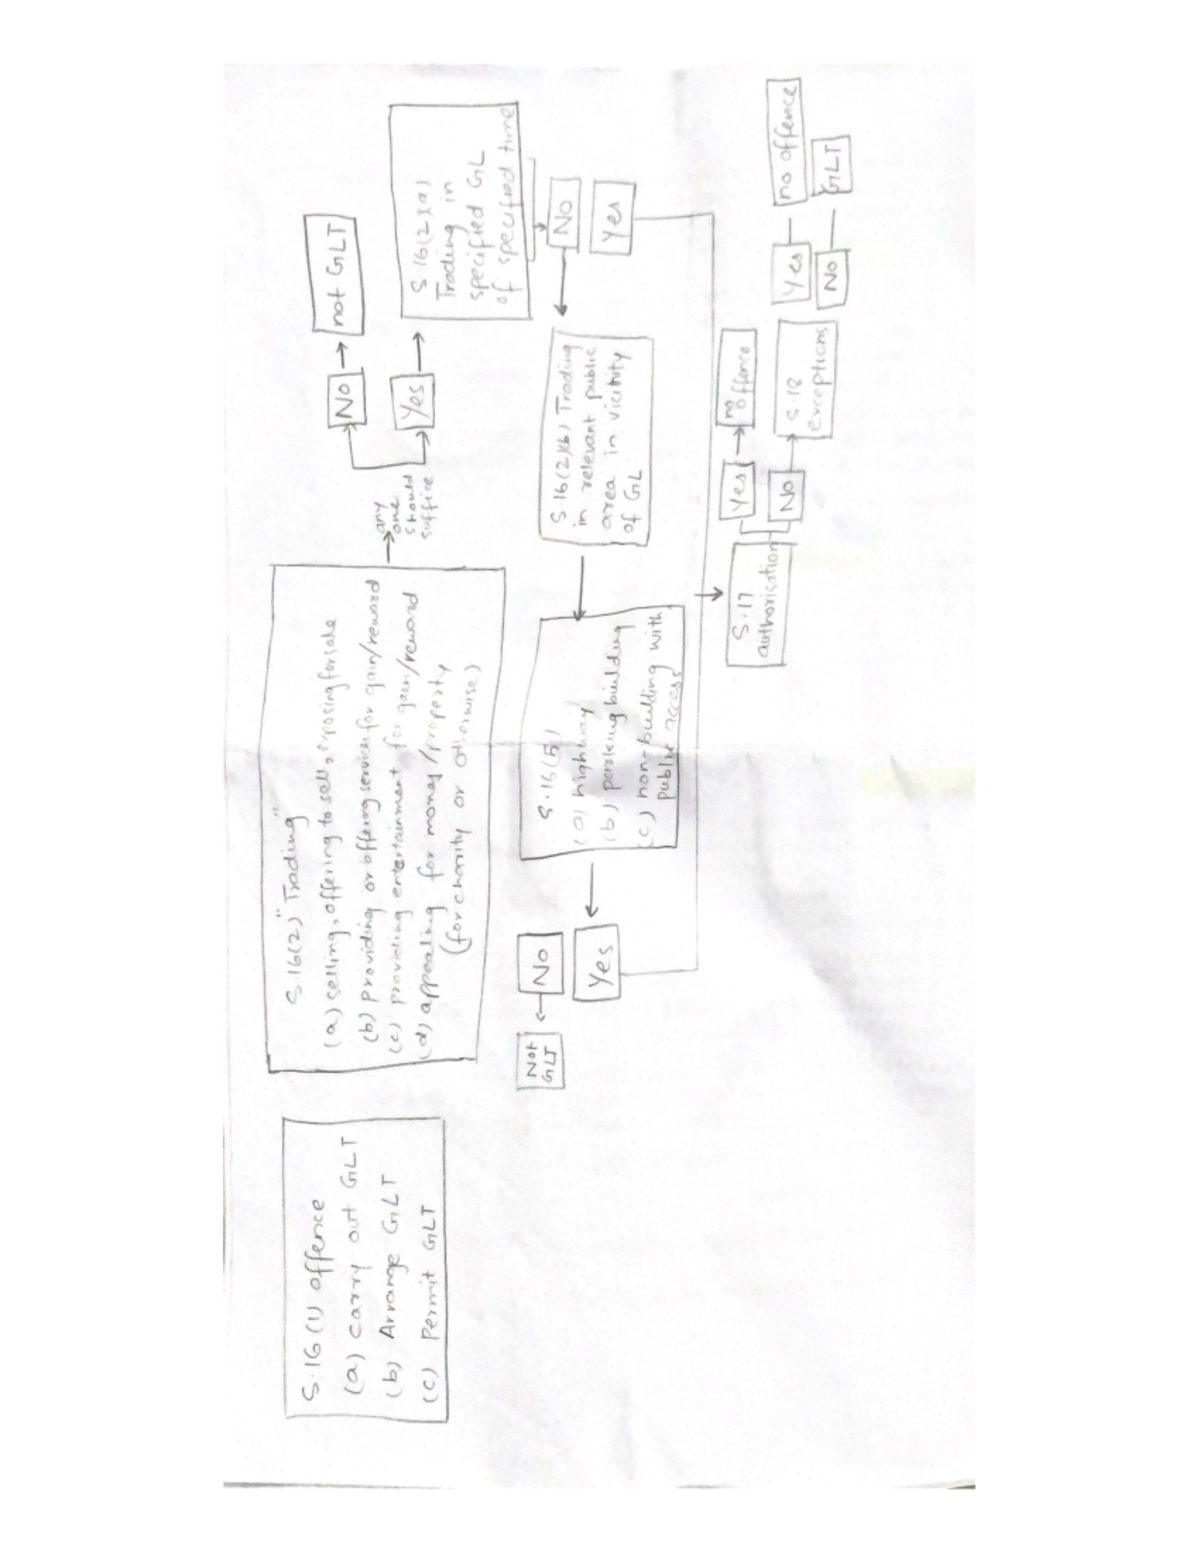 S.16(1) offence
(a) carry out GLT
(b) Arrange GLT
(c) Permit GLT
S.16(2) "Trading"
(a) selling, offering to sell, exposing for sale
(b) providing or offering services for gain/reward
(c) providing entertainment for gain/reward
(d) appealing for money/property
(for charity or otherwise)
any
one
should
suffice
No
not GLT
Yes
S 16(2)(a)
Trading in
specified GL
of specified time
No
Yes
S 16(2)(b) Trading
in relevant public
area in vicinity
of GL
S.16(5)
(a) highway
(b) parking building
(c) non-building with
public access
No
Not
GLT
Yes
S.17
authorisation
Yes
no offence
No
S.18
exceptions
Yes
no offence
No
GLT